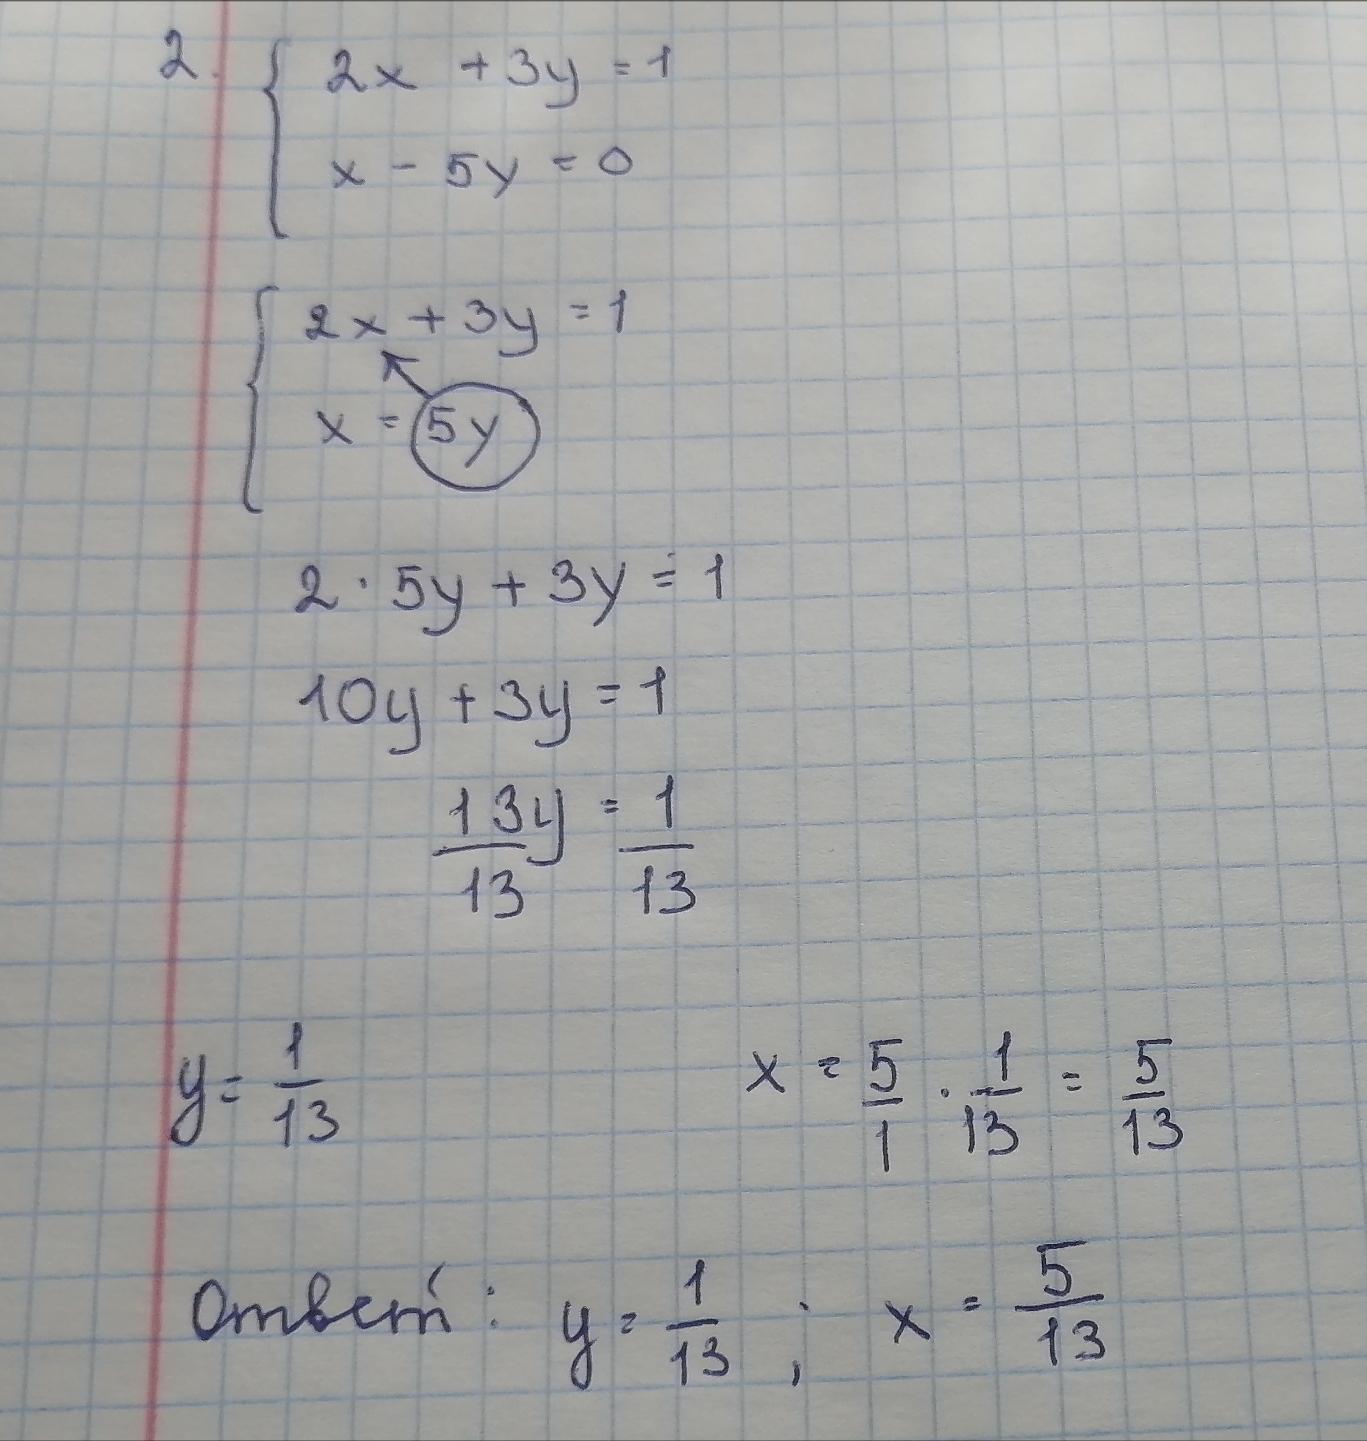 2. { 2x + 3y = 1
x - 5y = 0
{ 2x + 3y = 1
x = 5y
2 · 5y + 3y = 1
10y + 3y = 1
13/13 y = 1/13
y = 1/13 x = 5/1 · 1/13 = 5/13
Ответ: y = 1/13 ; x = 5/13